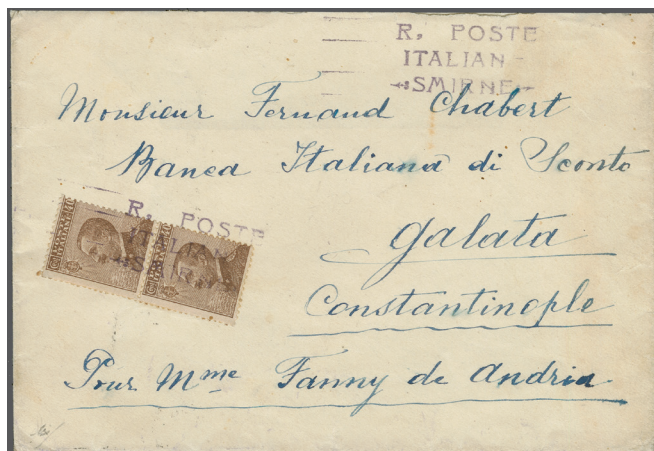 R. POSTE
ITALIAN
SMIRNE
Monsieur Fernand Chabert
Banca Italiana di Sconto
R. POSTE
ITALIAN
SMIRNE
Galata
Constantinople
Pour Mme Fanny de Andria